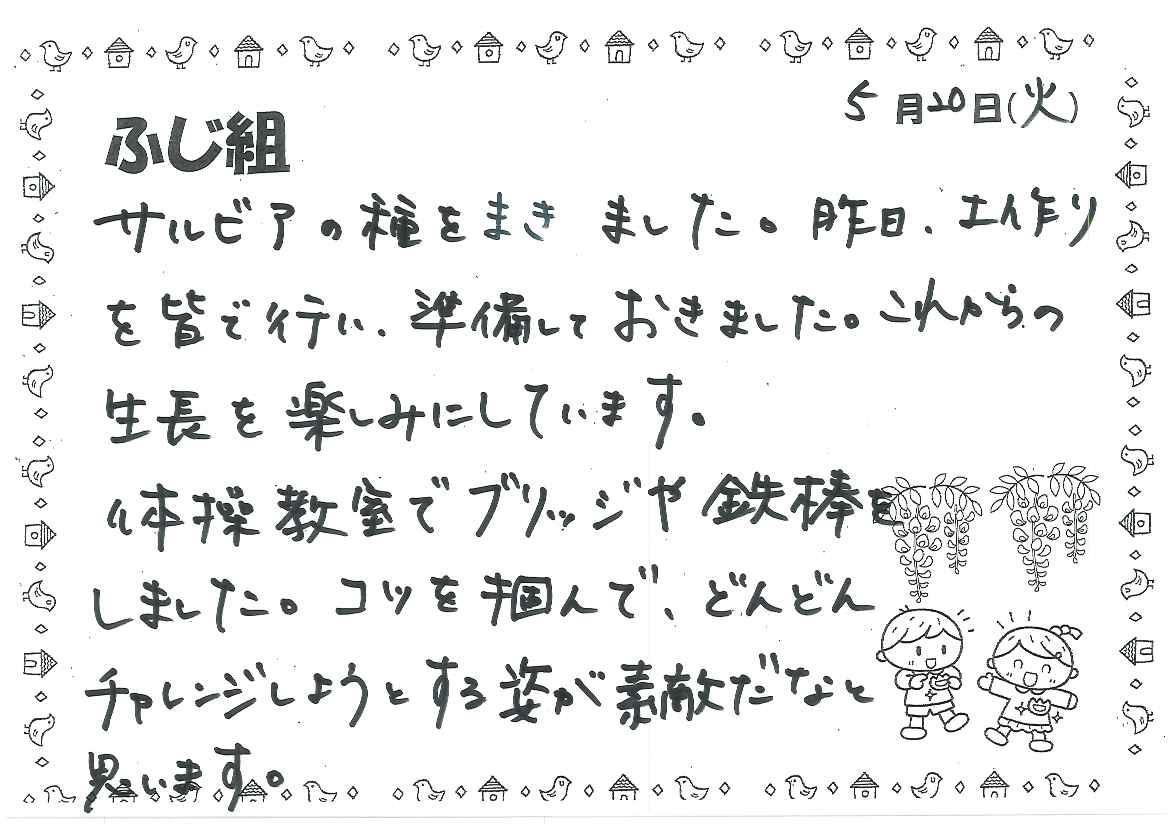 5月20日(火)
ふじ組
サルビアの種をまきました。昨日、土作り
を皆で行い、準備しておきました。これからの
生長を楽しみにしています。
体操教室でブリッジや鉄棒を
しました。コツを掴んで、どんどん
チャレンジしようとする姿が素敵だなと
思います。